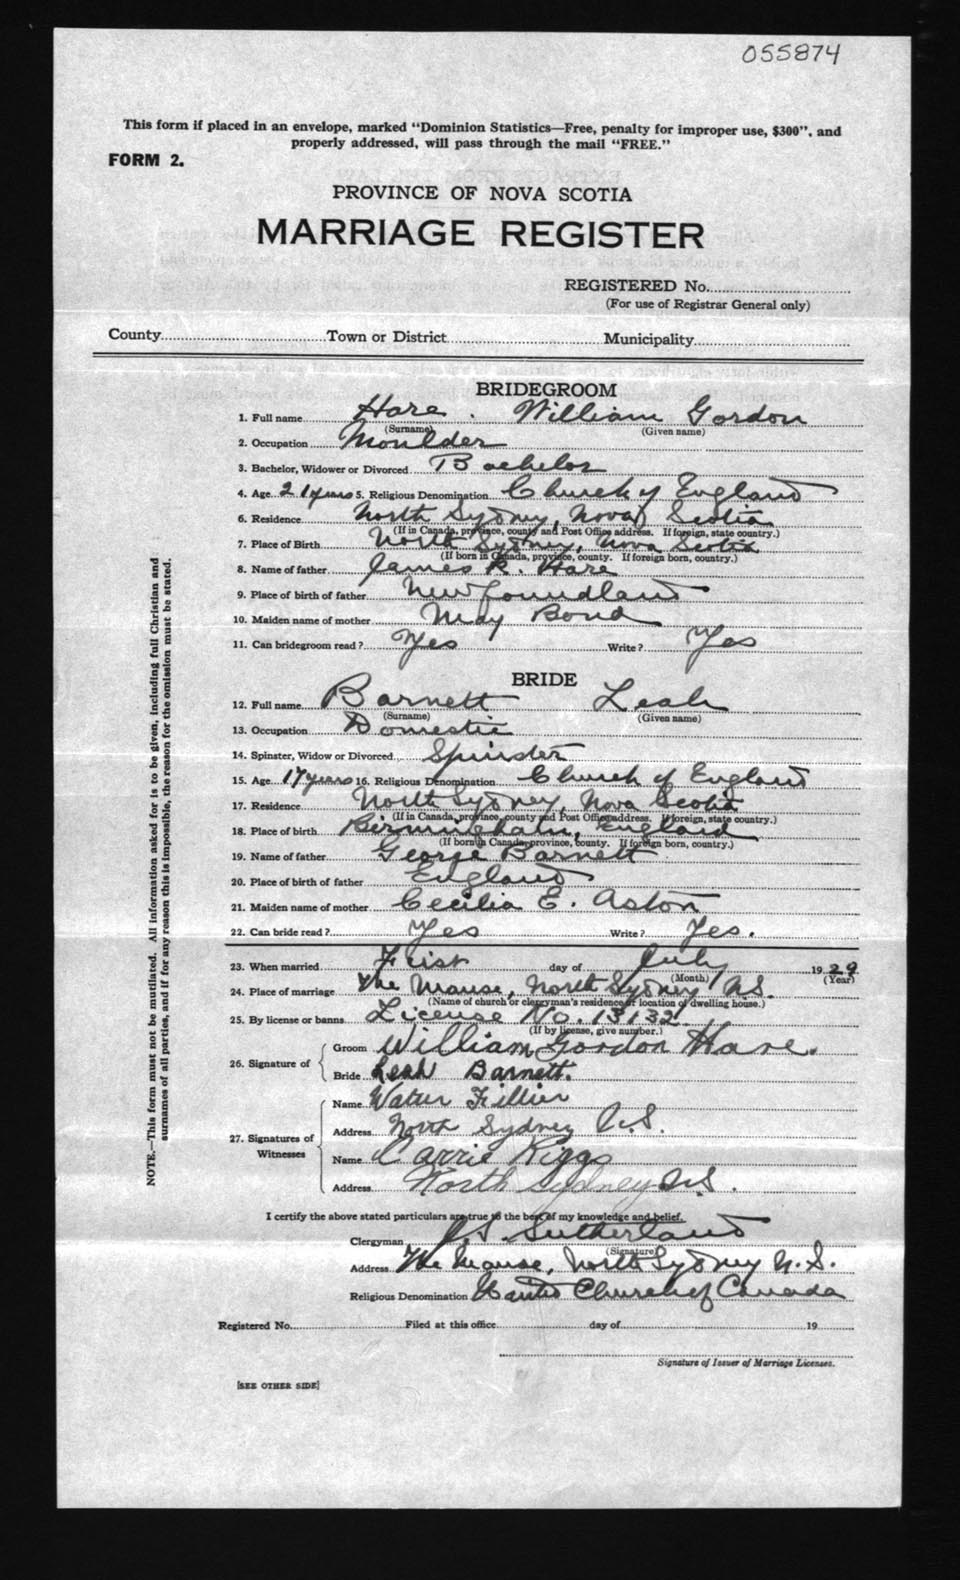 055874
This form if placed in an envelope, marked "Dominion Statistics—Free, penalty for improper use, $300", and
properly addressed, will pass through the mail "FREE."
FORM 2.
PROVINCE OF NOVA SCOTIA
MARRIAGE REGISTER
REGISTERED No.
(For use of Registrar General only)
County Town or District Municipality
BRIDEGROOM
1. Full name Hare. William Gordon
(Surname) (Given name)
2. Occupation Moulder
3. Bachelor, Widower or Divorced Bachelor
4. Age 21 years 5. Religious Denomination Church of England
6. Residence North Sydney, Nova Scotia
(If in Canada, province, county and Post Office address. If foreign, state country.)
7. Place of Birth North Sydney, Nova Scotia
(If born in Canada, province, county. If foreign born, country.)
8. Name of father James R. Hare
9. Place of birth of father Newfoundland
10. Maiden name of mother May Bond
11. Can bridegroom read? Yes Write? Yes
BRIDE
12. Full name Barnett Leah
(Surname) (Given name)
13. Occupation Domestic
14. Spinster, Widow or Divorced Spinster
15. Age 17 years 16. Religious Denomination Church of England
17. Residence North Sydney, Nova Scotia
(If in Canada, province, county and Post Office address. If foreign, state country.)
18. Place of birth Birmingham, England
(If born in Canada, province, county. If foreign born, country.)
19. Name of father George Barnett
20. Place of birth of father England
21. Maiden name of mother Cecilia E. Aston
22. Can bride read? Yes Write? Yes.
23. When married First day of July 1929
(Month) (Year)
24. Place of marriage The Manse, North Sydney N.S.
(Name of church or clergyman's residence or location of dwelling house.)
25. By license or banns License No. 13132
(If by license, give number.)
26. Signature of
Groom William Gordon Hare.
Bride Leah Barnett.
27. Signatures of Witnesses
Name Fillier
Address North Sydney N.S.
Name Carrie Riggs
Address North Sydney N.S.
I certify the above stated particulars are true to the best of my knowledge and belief.
Clergyman Sutherland
(Signature)
Address The Manse, North Sydney N.S.
Religious Denomination United Church of Canada
Registered No. Filed at this office day of 19
Signature of Issuer of Marriage Licenses.
[SEE OTHER SIDE]
NOTE.—This form must not be mutilated. All information asked for is to be given, including full Christian and
surnames of all parties, and if for any reason this is impossible, the reason for the omission must be stated.